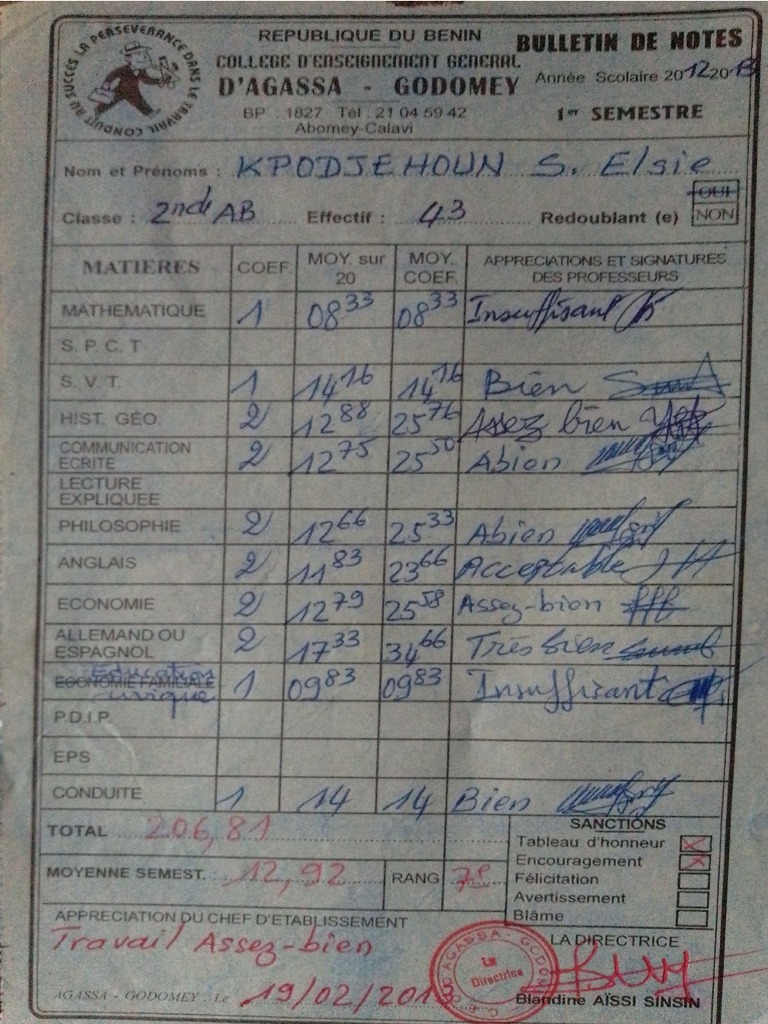 CONDUIT AU SUCCÈS LA PERSEVERANCE DANS LE TRAVAIL
REPUBLIQUE DU BENIN
COLLEGE D'ENSEIGNEMENT GENERAL
D'AGASSA - GODOMEY
BP : 1827 Tél : 21 04 59 42
Abomey-Calavi
BULLETIN DE NOTES
Année Scolaire 2012 2013
1er SEMESTRE
Nom et Prénoms : KPODJEHOUN S. Elsie
Classe : 2nde AB Effectif : 43 Redoublant (e) OUI NON
MATIERES COEF. MOY. sur 20 MOY. COEF. APPRECIATIONS ET SIGNATURES DES PROFESSEURS
MATHEMATIQUE 1 08 33 08 33 Insuffisant
S. P. C. T
S. V. T. 1 14 16 14 16 Bien
HIST. GÉO. 2 12 88 25 76 Assez bien
COMMUNICATION ECRITE 2 12 75 25 50 Abien
LECTURE EXPLIQUEE
PHILOSOPHIE 2 12 66 25 33 Abien
ANGLAIS 2 11 83 23 66 Acceptable
ECONOMIE 2 12 79 25 58 Assez-bien
ALLEMAND OU ESPAGNOL 2 17 33 34 66 Très bien
ECONOMIE FAMILIALE Education civique 1 09 83 09 83 Insuffisant
P.D.I.P.
EPS
CONDUITE 1 14 14 Bien
TOTAL 206,81
MOYENNE SEMEST. : 12,92 RANG 7e
SANCTIONS
Tableau d'honneur
Encouragement
Félicitation
Avertissement
Blâme
APPRECIATION DU CHEF D'ETABLISSEMENT
Travail Assez-bien
AGASSA - GODOMEY : Le 19/02/2013
AGASSA - GODOMEY
La Directrice
LA DIRECTRICE
Blandine AÏSSI SINSIN